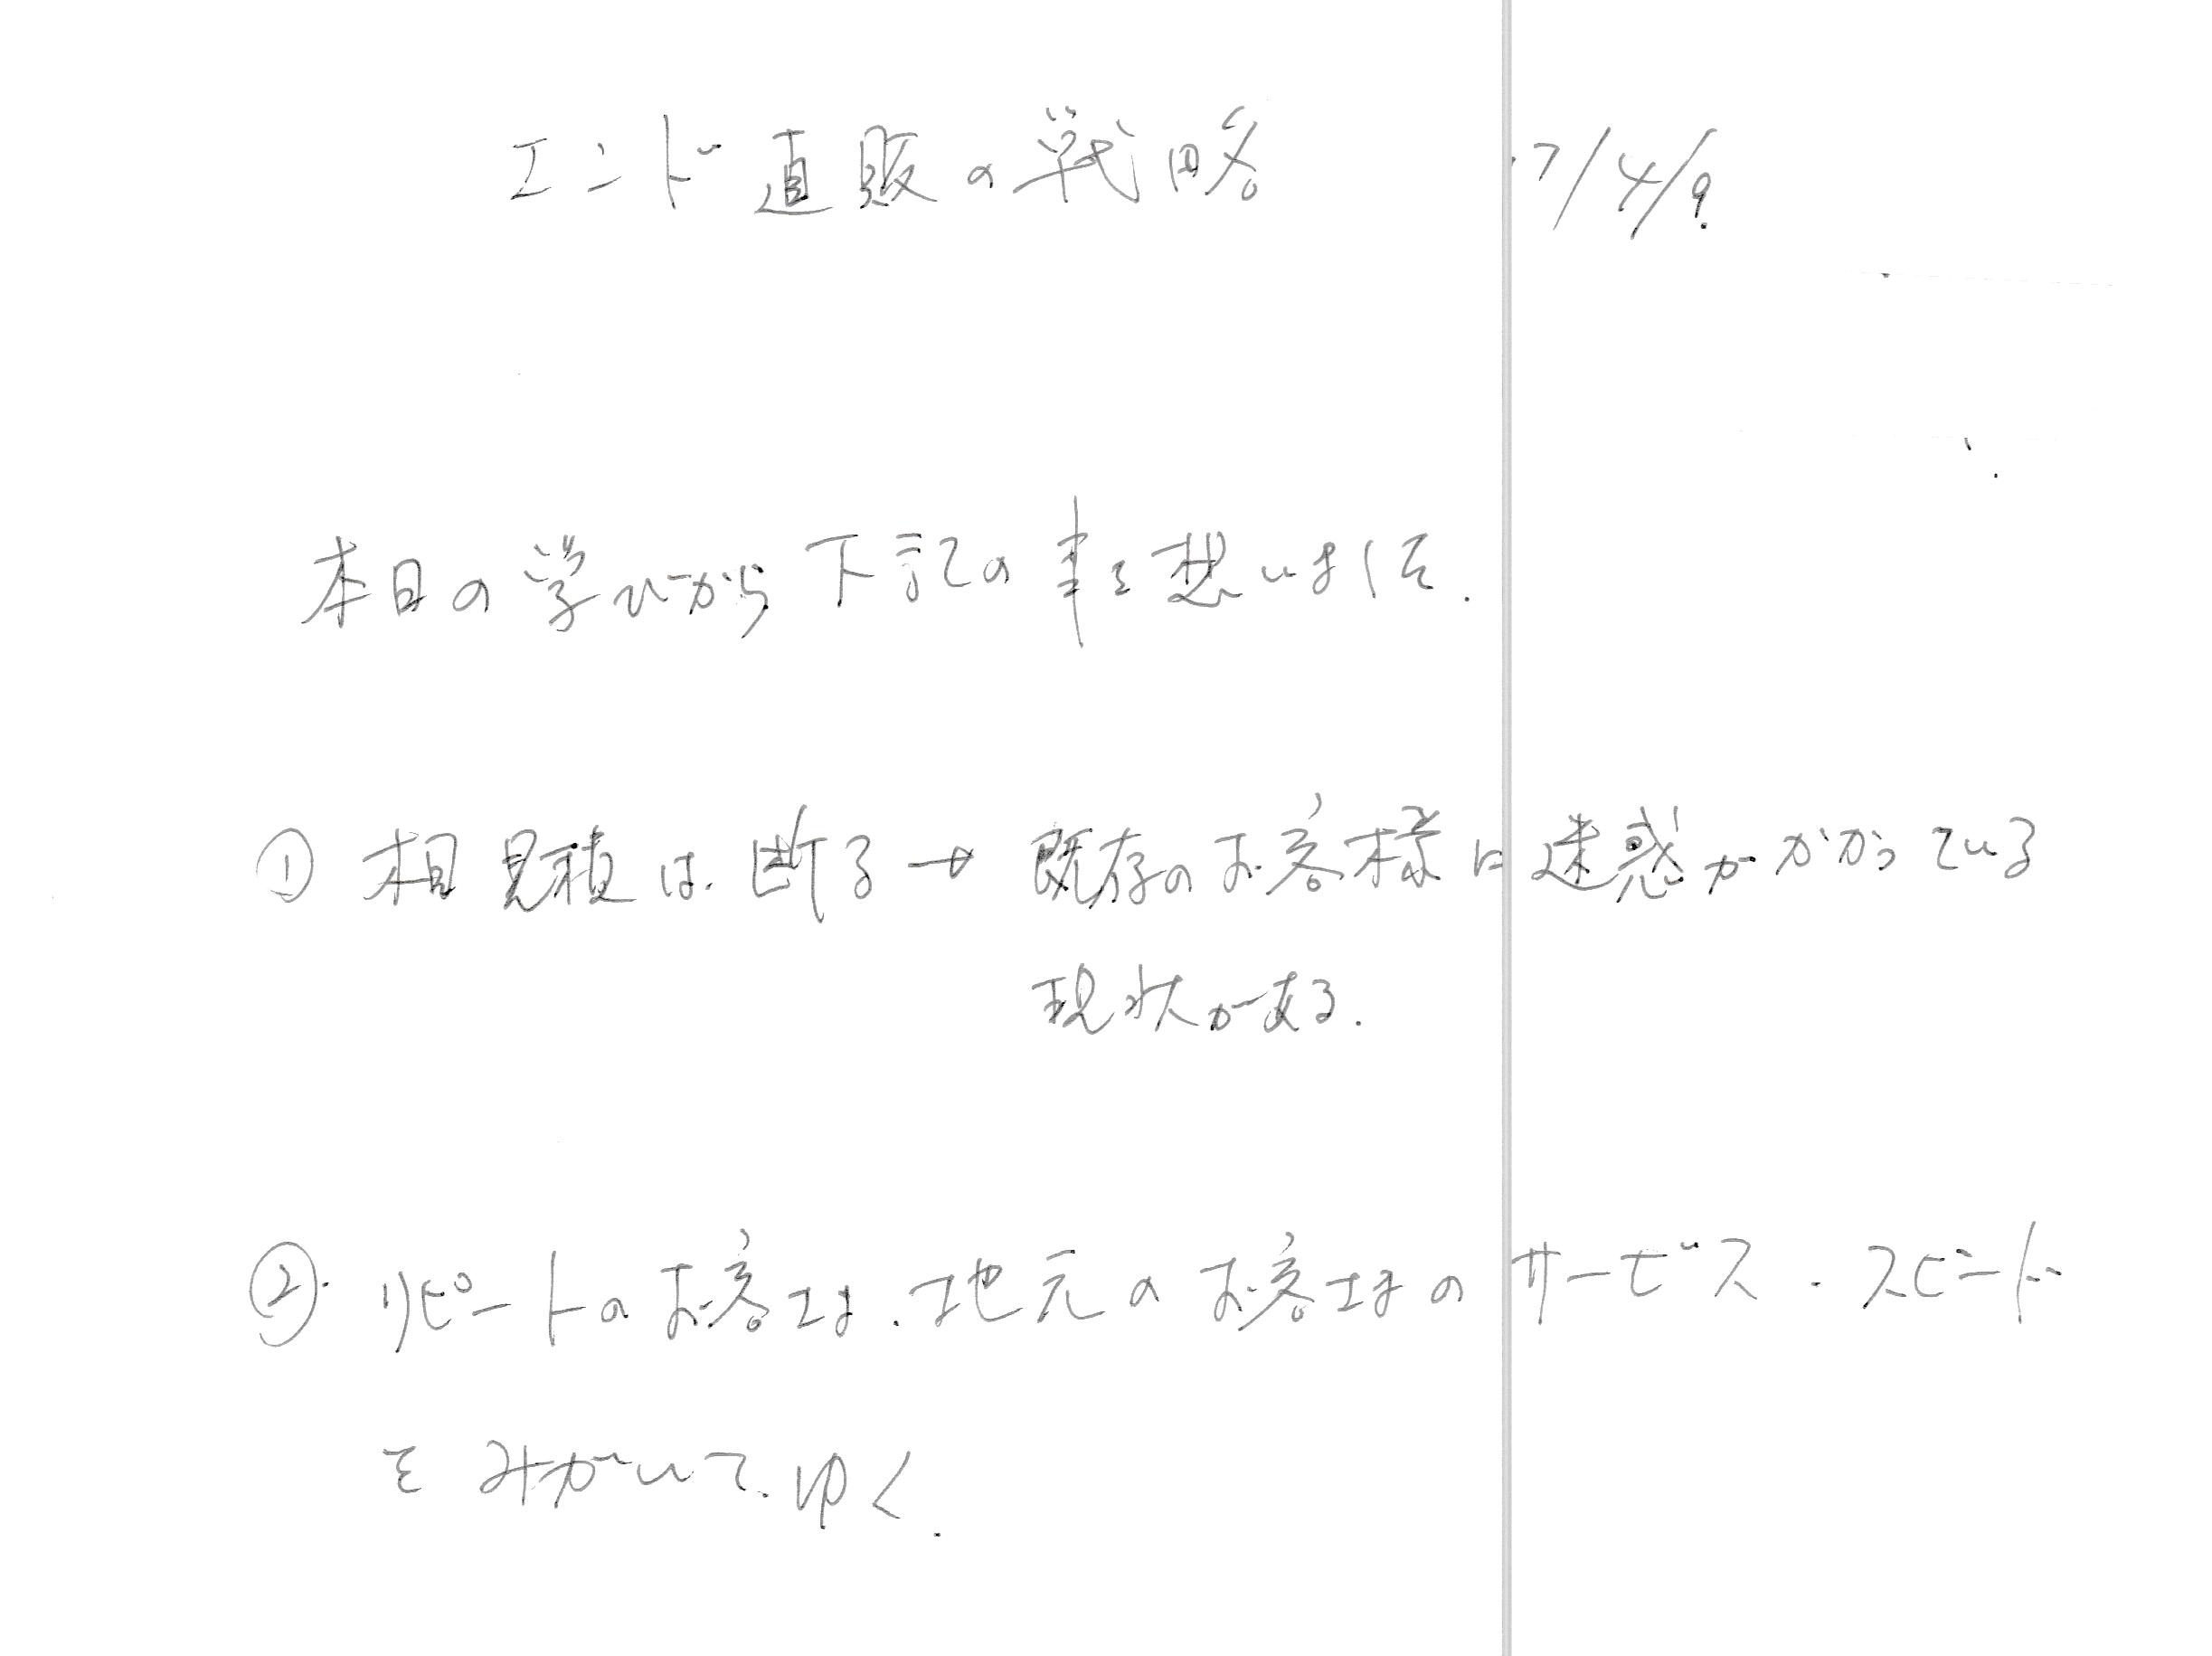 エンド直販の戦略 '17/4/9.
本日の学びから下記の事を想いました.
① 相見積は.断る→既存のお客様に迷惑がかかっている
現状がある.
②. リピートのお客さま.地元のお客さまの サービス・スピード
を みがいて.ゆく.